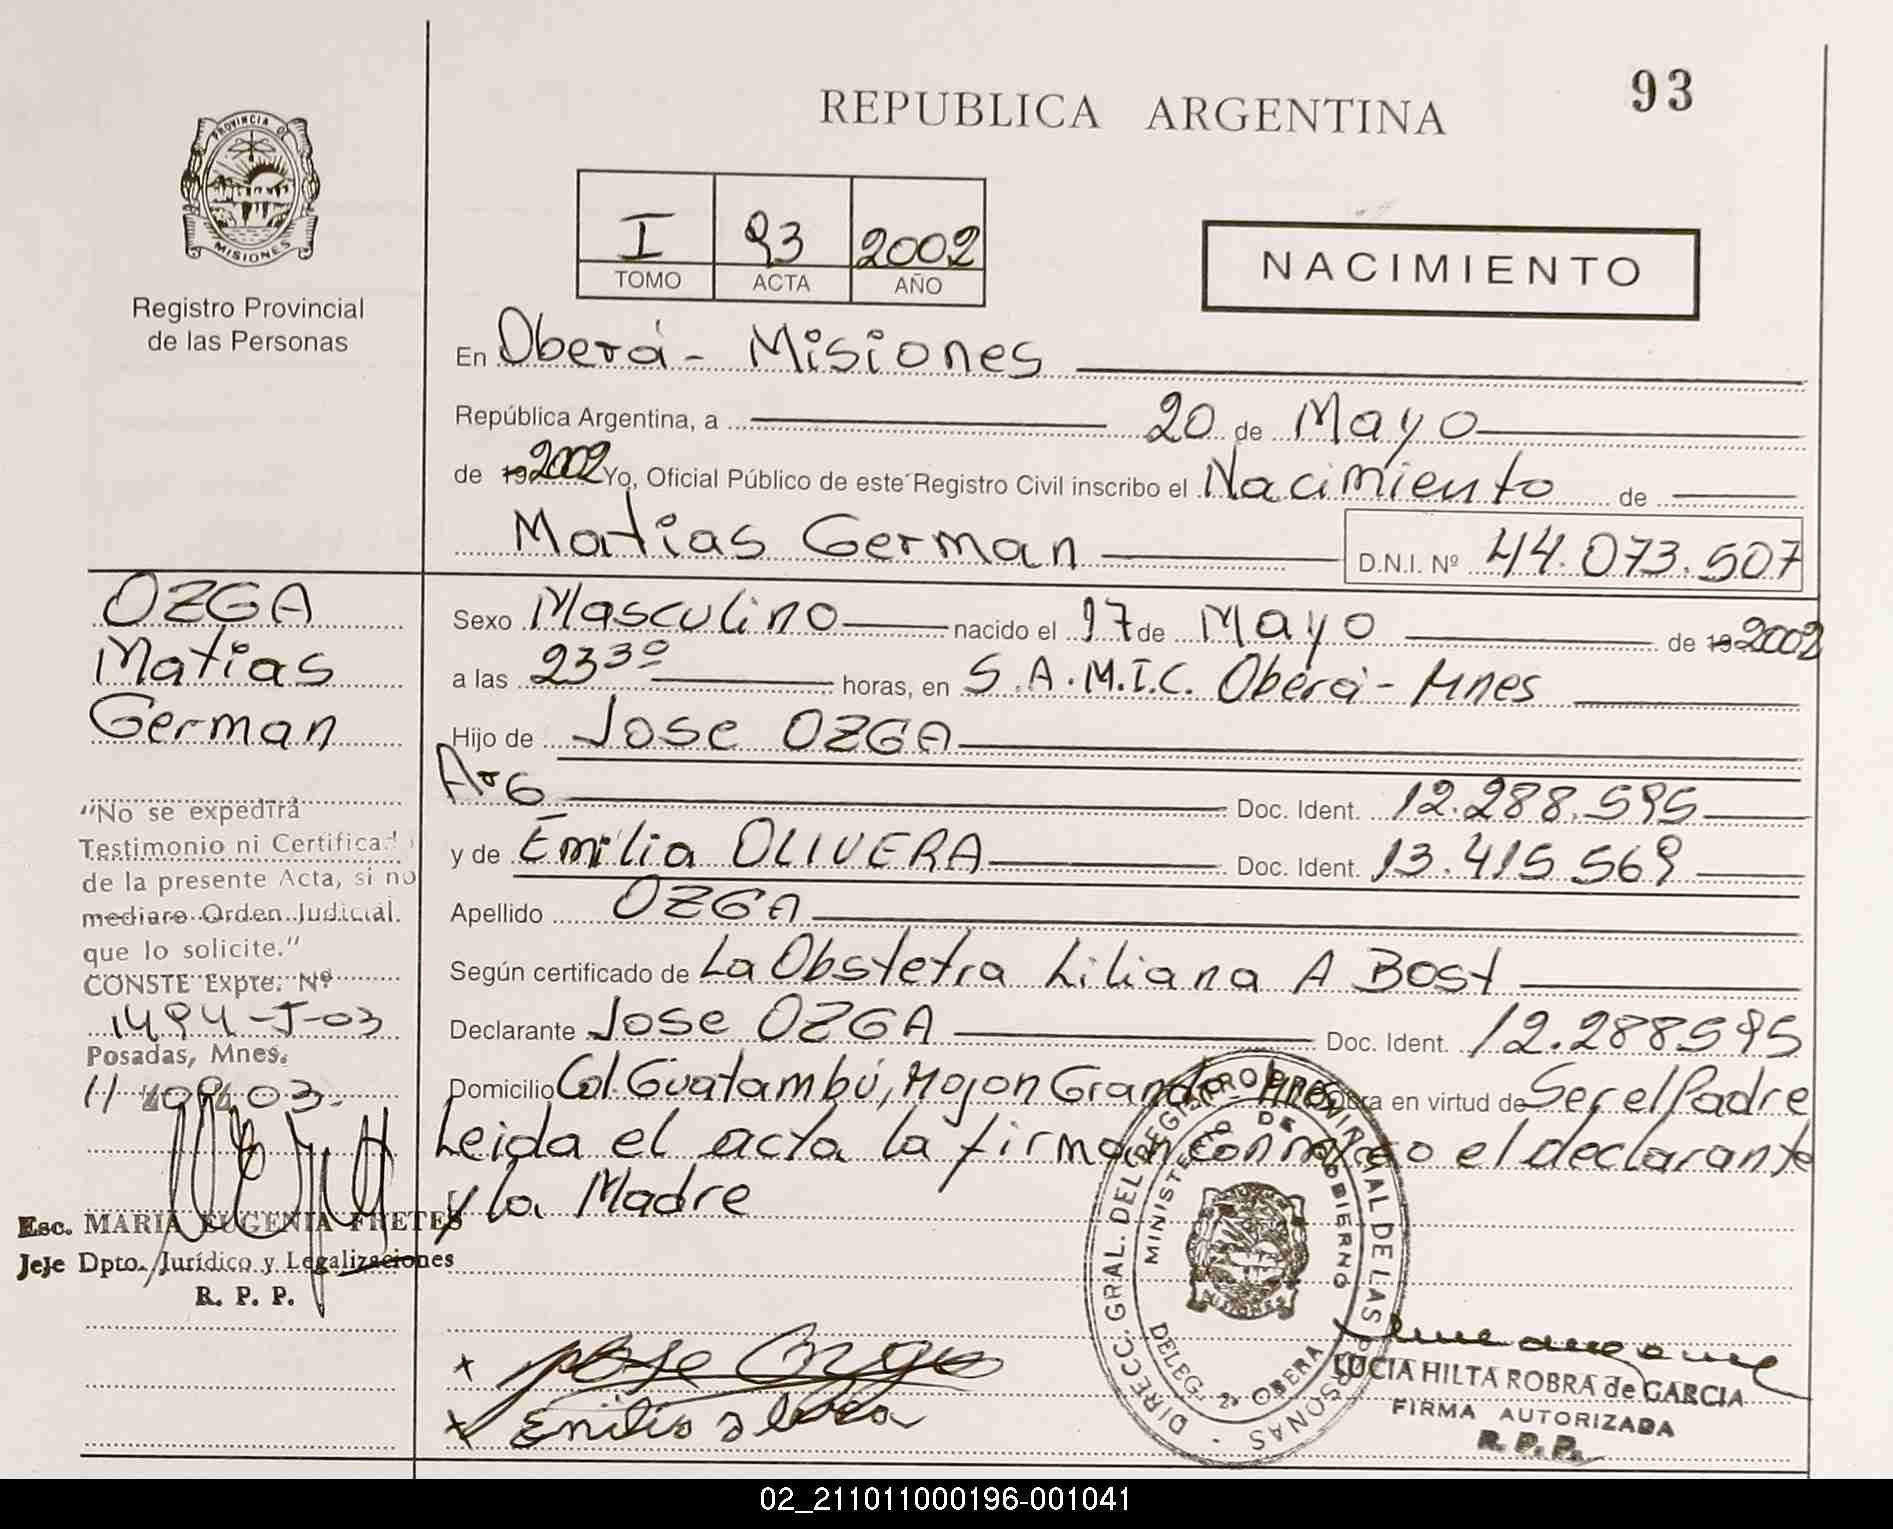 93
REPUBLICA ARGENTINA
PROVINCIA DE
MISIONES
Registro Provincial
de las Personas
I 93 2002
TOMO ACTA AÑO
NACIMIENTO
En Oberá - Misiones
República Argentina, a 20 de Mayo
de 192002 Yo, Oficial Público de este Registro Civil inscribo el Nacimiento de
Matias German D.N.I. Nº 44.073.507
OZGA
Matias
German
Sexo Masculino nacido el 17 de Mayo de 192002
a las 23 30 horas, en S.A.M.I.C. Oberá - Mnes
Hijo de Jose OZGA
Arg Doc. Ident. 12.288.595
y de Emilia OLIVERA Doc. Ident. 13.415 569
Apellido OZGA
Según certificado de La Obstetra Liliana A Bost
Declarante Jose OZGA Doc. Ident. 12.288595
Domicilio Col. Guatambú, Mojon Grande - Mnes Obra en virtud de Ser el Padre
Leida el acta la firman conmigo el declarante
y la Madre
"No se expedirá
Testimonio ni Certificad
de la presente Acta, si no
mediare Orden Judicial
que lo solicite."
CONSTE Expte. Nº
1494-J-03
Posadas, Mnes.
11 03.
Esc. MARIA EUGENIA FRETES
Jeje Dpto. Jurídico y Legalizaciones
R. P. P.
DIRECC. GRAL. DEL REGISTRO PROVINCIAL DE LAS PERSONAS
MINISTERIO DE GOBIERNO
MISIONES
DELEG. 2ª OBERA
Jose Ozga
Emilia Olivera
LUCIA HILTA ROBRA de GARCIA
FIRMA AUTORIZADA
R. P. P.
02_211011000196-001041